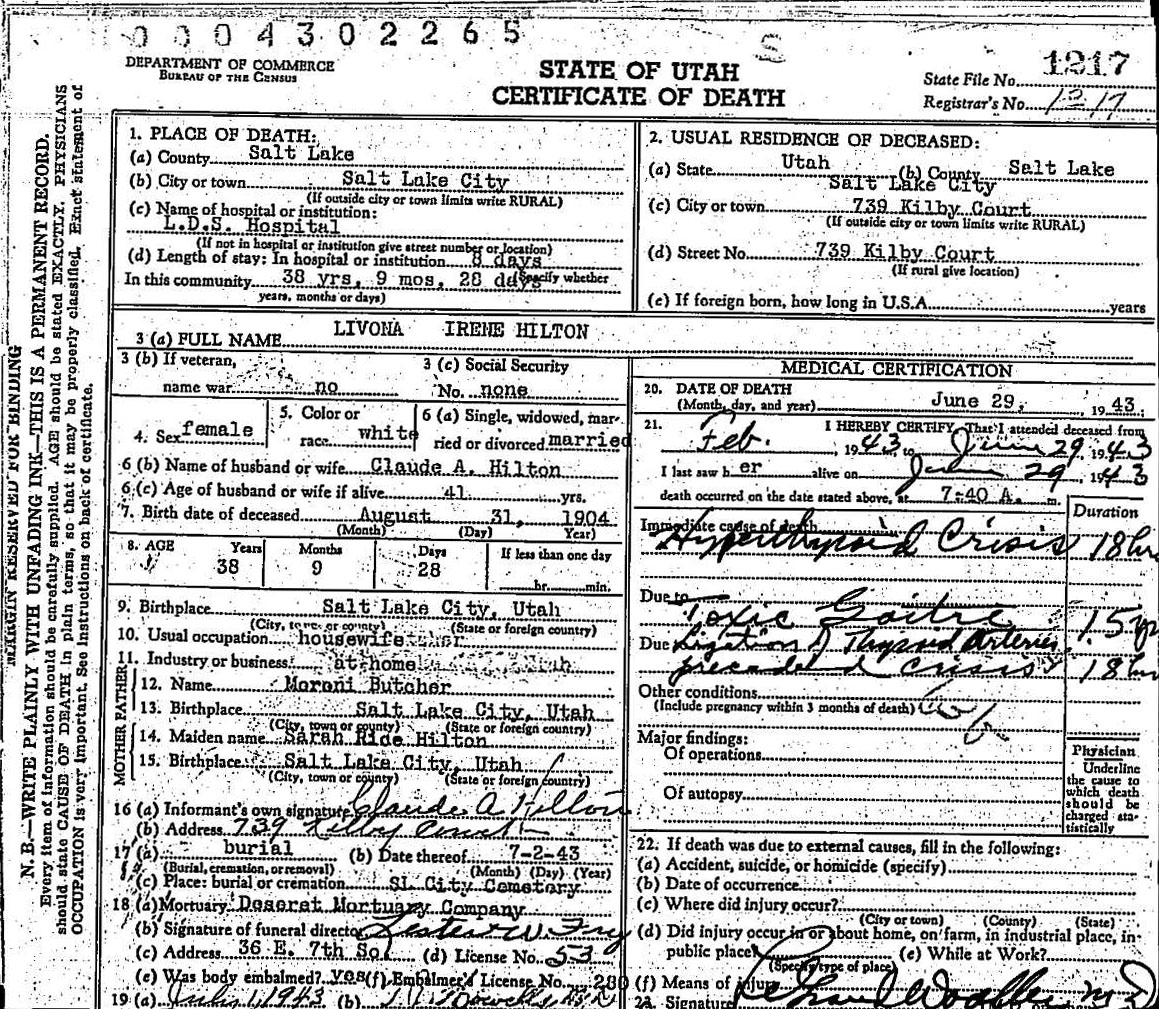 0004302265
S
DEPARTMENT OF COMMERCE
BUREAU OF THE CENSUS
STATE OF UTAH
CERTIFICATE OF DEATH
State File No. 1217
Registrar's No. 1217
MARGIN RESERVED FOR BINDING
N. B.—WRITE PLAINLY WITH UNFADING INK—THIS IS A PERMANENT RECORD.
Every item of information should be carefully supplied. AGE should be stated EXACTLY. PHYSICIANS
should state CAUSE OF DEATH in plain terms, so that it may be properly classified. Exact statement of
OCCUPATION is very important. See instructions on back of certificate.
1. PLACE OF DEATH:
(a) County Salt Lake
(b) City or town Salt Lake City
(If outside city or town limits write RURAL)
(c) Name of hospital or institution:
L.D.S. Hospital
(If not in hospital or institution give street number or location)
(d) Length of stay: In hospital or institution 8 days
In this community 38 yrs, 9 mos, 28 days (Specify whether
years, months or days)
2. USUAL RESIDENCE OF DECEASED:
(a) State Utah (b) County Salt Lake
Salt Lake City
(c) City or town 739 Kilby Court
(If outside city or town limits write RURAL)
(d) Street No. 739 Kilby Court
(If rural give location)
(e) If foreign born, how long in U.S.A. years
3 (a) FULL NAME LIVONA IRENE HILTON
3 (b) If veteran,
name war no
3 (c) Social Security
No. none
4. Sex female
5. Color or
race white
6 (a) Single, widowed, mar-
ried or divorced married
6 (b) Name of husband or wife Claude A. Hilton
6 (c) Age of husband or wife if alive 41 yrs.
7. Birth date of deceased August 31, 1904
(Month) (Day) Year)
8. AGE Years Months Days If less than one day
38 9 28 hr. min.
9. Birthplace Salt Lake City, Utah
(City, town or county) (State or foreign country)
10. Usual occupation housewife
11. Industry or business at home
FATHER
12. Name Moroni Butcher
13. Birthplace Salt Lake City, Utah
(City, town or county) (State or foreign country)
MOTHER
14. Maiden name Sarah Ride Hilton
15. Birthplace Salt Lake City, Utah
(City, town or county) (State or foreign country)
16 (a) Informant's own signature Claude A Hilton
(b) Address 739 Kilby Court
17 (a) burial (b) Date thereof 7-2-43
(Burial, cremation, or removal) (Month) (Day) (Year)
(c) Place: burial or cremation SL City Cemetary
18 (a) Mortuary Deseret Mortuary Company
(b) Signature of funeral director Lester W Fry
(c) Address 36 E. 7th So. (d) License No. 53
(e) Was body embalmed? yes (f) Embalmer's License No. 280
19 (a) July 1, 1943 (b)
MEDICAL CERTIFICATION
20. DATE OF DEATH
(Month, day, and year) June 29, 1943
21. I HEREBY CERTIFY, That I attended deceased from
Feb. 1943 to June 29, 1943
I last saw her alive on June 29 1943
death occurred on the date stated above, at 7-40 A. m.
Duration
Immediate cause of death
Hyperthyroid Crisis 18 hrs
Due to
Toxic Goitre 15 yr
Due Ligation of Thyroid Arteries
preceded crisis 18 hrs
Other conditions
(Include pregnancy within 3 months of death)
Major findings:
Of operations
Of autopsy
Physician
Underline
the cause to
which death
should be
charged sta-
tistically
22. If death was due to external causes, fill in the following:
(a) Accident, suicide, or homicide (specify)
(b) Date of occurrence
(c) Where did injury occur?
(City or town) (County) (State)
(d) Did injury occur in or about home, on farm, in industrial place, in
public place? (e) While at Work?
(Specify type of place)
(f) Means of injury
23. Signature M D